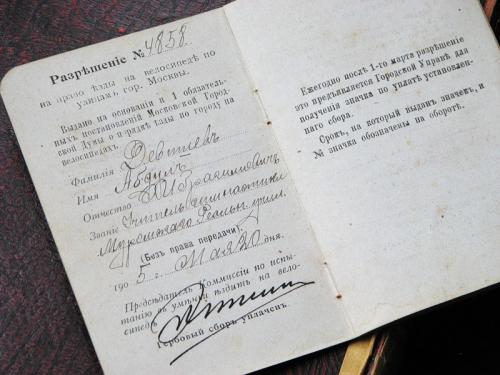 Разрѣшеніе № 4858.
на право ѣзды на велосипедѣ по
улицамъ гор. Москвы.
Выдано на основаніи п 1 обязатель-
ныхъ постановленій Московской Город-
ской Думы о порядкѣ ѣзды по городу на
велосипедахъ.
Фамилія
Имя Абдулъ
Отчество Ибрагимовичъ
Званіе Учитель гимнастики
Муромскаго Реальн. учил.
(Безъ права передачи)
1905 г. Мая 20 дня.
Предсѣдатель Коммиссіи по испы-
танію въ умѣніи ѣздить на вело-
сипедѣ
Гербовый сборъ уплаченъ.
Ежегодно послѣ 1-го марта разрѣшеніе
это предъявляется Городской Управѣ для
полученія значка по уплатѣ установлен-
наго сбора.
Срокъ, на который выданъ значекъ, и
№ значка обозначены на оборотѣ.